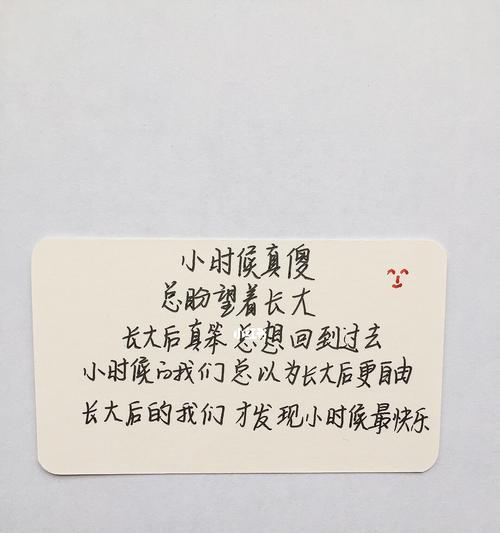 小时候真傻
总盼望着长大
长大后真笨 总想回到过去
小时候的我们总以为长大后更自由
长大后的我们 才发现小时候最快乐